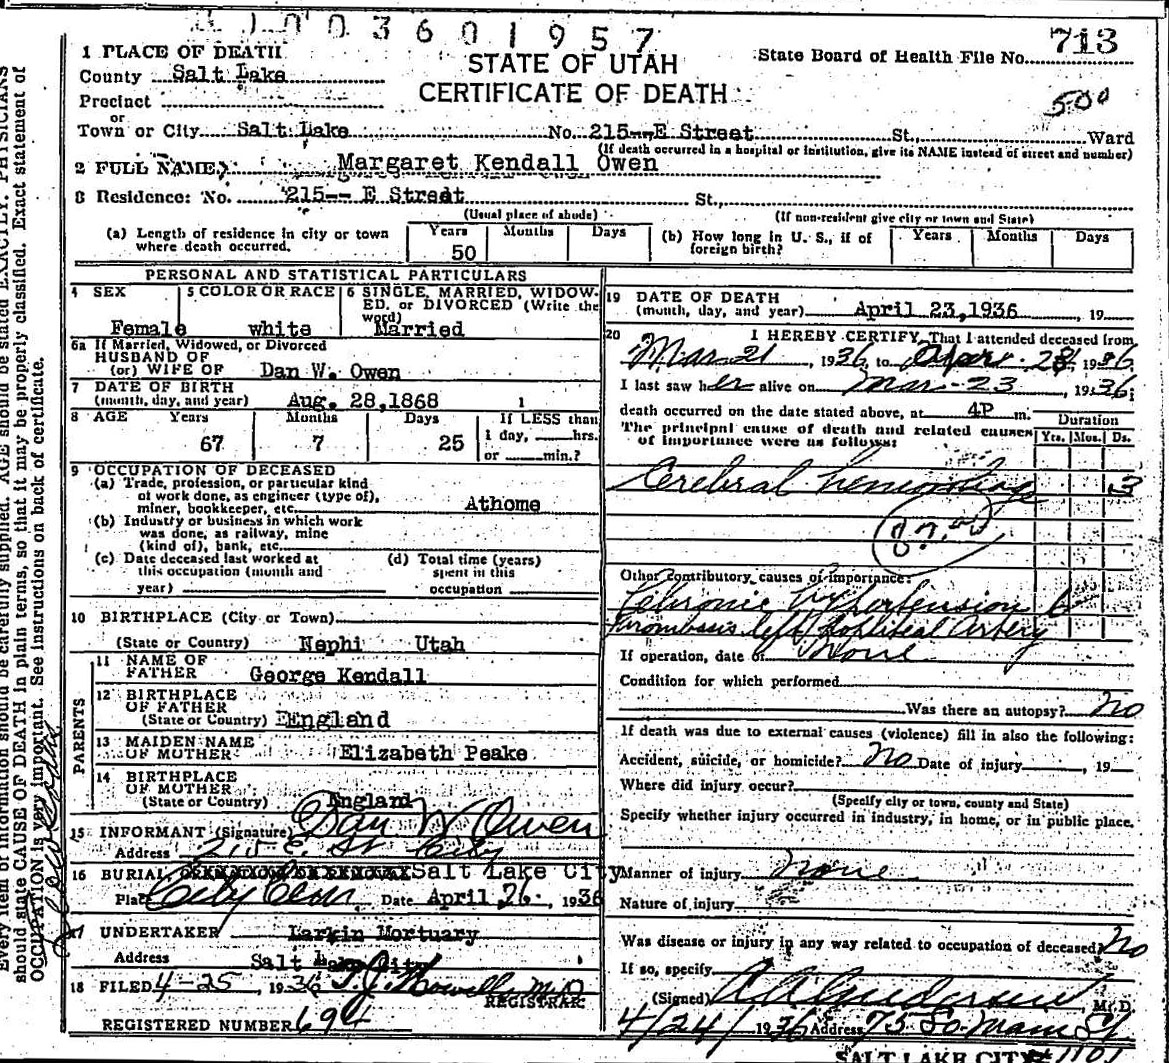 3 6 0 1 9 5 7
713
1 PLACE OF DEATH
STATE OF UTAH
State Board of Health File No.
County Salt Lake
CERTIFICATE OF DEATH
Precinct
500
or
Town or City Salt Lake No. 215--E Street St., Ward
(If death occurred in a hospital or institution, give its NAME instead of street and number)
2 FULL NAME Margaret Kendall Owen
3 Residence: No. 215-- E Street St.,
(Usual place of abode) (If non-resident give city or town and State)
(a) Length of residence in city or town where death occurred. Years 50 Months Days
(b) How long in U. S., if of foreign birth? Years Months Days
PERSONAL AND STATISTICAL PARTICULARS
4 SEX Female
5 COLOR OR RACE white
6 SINGLE, MARRIED, WIDOWED, or DIVORCED (Write the word) Married
6a If Married, Widowed, or Divorced
HUSBAND OF
(or) WIFE OF Dan W. Owen
7 DATE OF BIRTH
(month, day, and year) Aug. 28,1868
8 AGE Years 67 Months 7 Days 25
If LESS than
1 day, ___hrs.
or ___min.?
9 OCCUPATION OF DECEASED
(a) Trade, profession, or particular kind
of work done, as engineer (type of),
miner, bookkeeper, etc. Athome
(b) Industry or business in which work
was done, as railway, mine
(kind of), bank, etc.
(c) Date deceased last worked at
this occupation (month and
year)
(d) Total time (years)
spent in this
occupation
10 BIRTHPLACE (City or Town)
(State or Country) Nephi Utah
PARENTS
11 NAME OF
FATHER George Kendall
12 BIRTHPLACE
OF FATHER
(State or Country) EEngland
13 MAIDEN NAME
OF MOTHER Elizabeth Peake
14 BIRTHPLACE
OF MOTHER
(State or Country) England
15 INFORMANT (Signature) Dan W Owen
Address 215 E. St City
16 BURIAL Salt Lake City
Place City Cem Date April 26. 1936
17 UNDERTAKER Larkin Mortuary
Address Salt Lake City
18 FILED 4-25, 1936 T.J. Howells M.D
REGISTRAR
REGISTERED NUMBER 694
19 DATE OF DEATH
(month, day, and year) April 23,1936, 19
20 I HEREBY CERTIFY, That I attended deceased from
Mar 21, 1936, to Apr. 23, 1936.
I last saw her alive on Mar-23 1936;
death occurred on the date stated above, at 4P m.
The principal cause of death and related causes
of importance were as follows:
Duration
Yrs. Mos. Ds.
Cerebral hemorrhage 3
Other contributory causes of importance:
Chronic hypertension 6
thrombosis left popliteal artery
If operation, date of None
Condition for which performed
Was there an autopsy? No
If death was due to external causes (violence) fill in also the following:
Accident, suicide, or homicide? No Date of injury, 19
Where did injury occur?
(Specify city or town, county and State)
Specify whether injury occurred in industry, in home, or in public place.
Manner of injury None
Nature of injury
Was disease or injury in any way related to occupation of deceased? No
If so, specify
(Signed) M.D.
4/24/1936 Address 75 So. Main St
SALT LAKE CITY
Every item of information should be carefully supplied. AGE should be stated EXACTLY. PHYSICIANS
should state CAUSE OF DEATH in plain terms, so that it may be properly classified. Exact statement of
OCCUPATION is very important. See instructions on back of certificate.